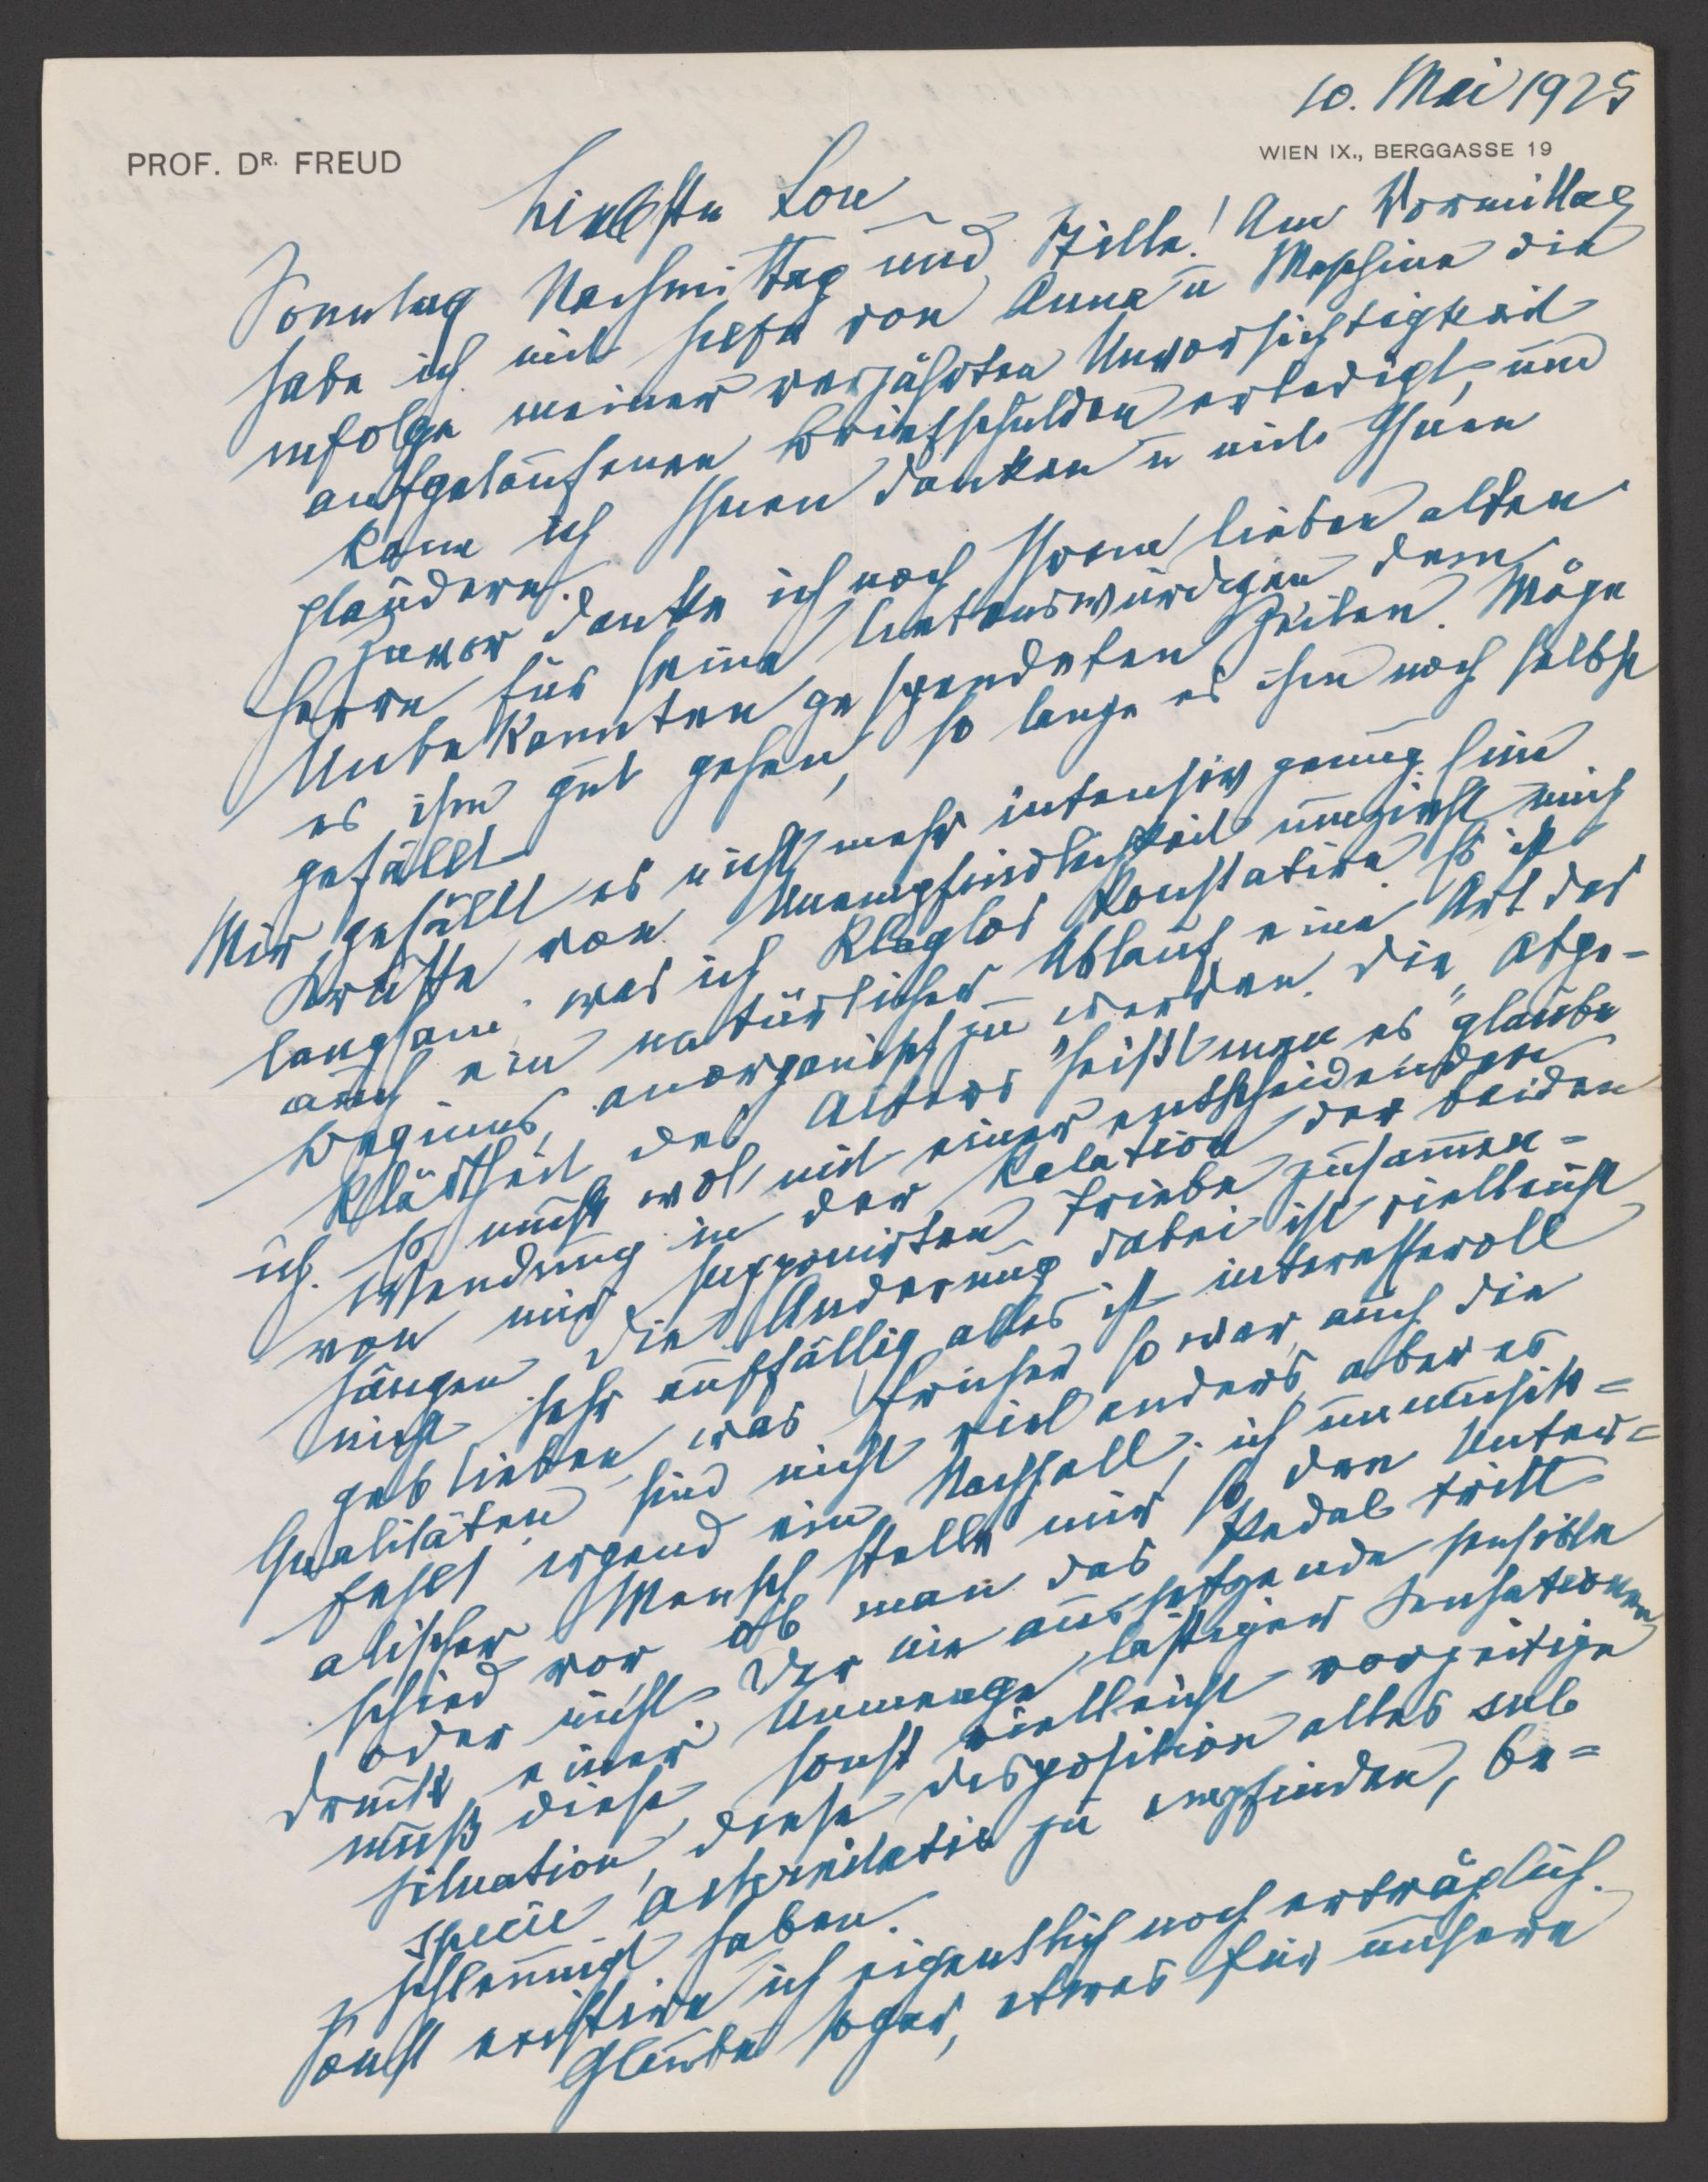 10. Mai 1925
PROF. DR. FREUD
WIEN IX., BERGGASSE 19
Liebste Lou
Sonntag Nachmittag und Stille! Am Vormittag
habe ich mit Hilfe von Anna u Maschine die
infolge meiner verjährten Unvorsichtigkeit
aufgelaufenen Briefschulden erledigt, nun
kann ich Ihnen danken u mit Ihnen
plaudern.
Zuvor danke ich noch Ihrem lieben alten
Herrn für seine liebenswürdigen dem
Unbekannten gespendeten Zeilen. Möge
es ihm gut gehen, so lange es ihm noch selbst
gefällt.
Mir gefällt es nicht mehr intensiv genug. Eine
Kruste von Unempfindlichkeit umzieht mich
langsam; was ich klaglos konstatire. Es ist
auch ein natürlicher Ablauf, eine Art des
Beginns, anorganisch zu werden. Die „Abge-
klärtheit des Alters“ heißt man es glaube
ich. Es muß wol mit einer entscheidenden
Wendung in der Relation der beiden
von mir supponirten Triebe zusammen=
hängen. Die Änderung dabei ist vielleicht
nicht sehr auffällig, alles ist interessevoll
geblieben, was früher so war, auch die
Qualitäten sind nicht viel anders, aber es
fehlt irgend ein Nachhall; ich unmusik=
alischer Mensch stelle mir so den Unter=
schied vor, ob man das Pedal tritt
oder nicht. Der nie aussetzende sensible
Druck einer Unmenge lästiger Sensationen
muß diese sonst vielleicht vorzeitige
Situation, diese Disposition alles sub
specie aeternitatis zu empfinden, be=
schleunigt haben.
Sonst existire ich eigentlich noch erträglich.
Glaube sogar, etwas für unsere